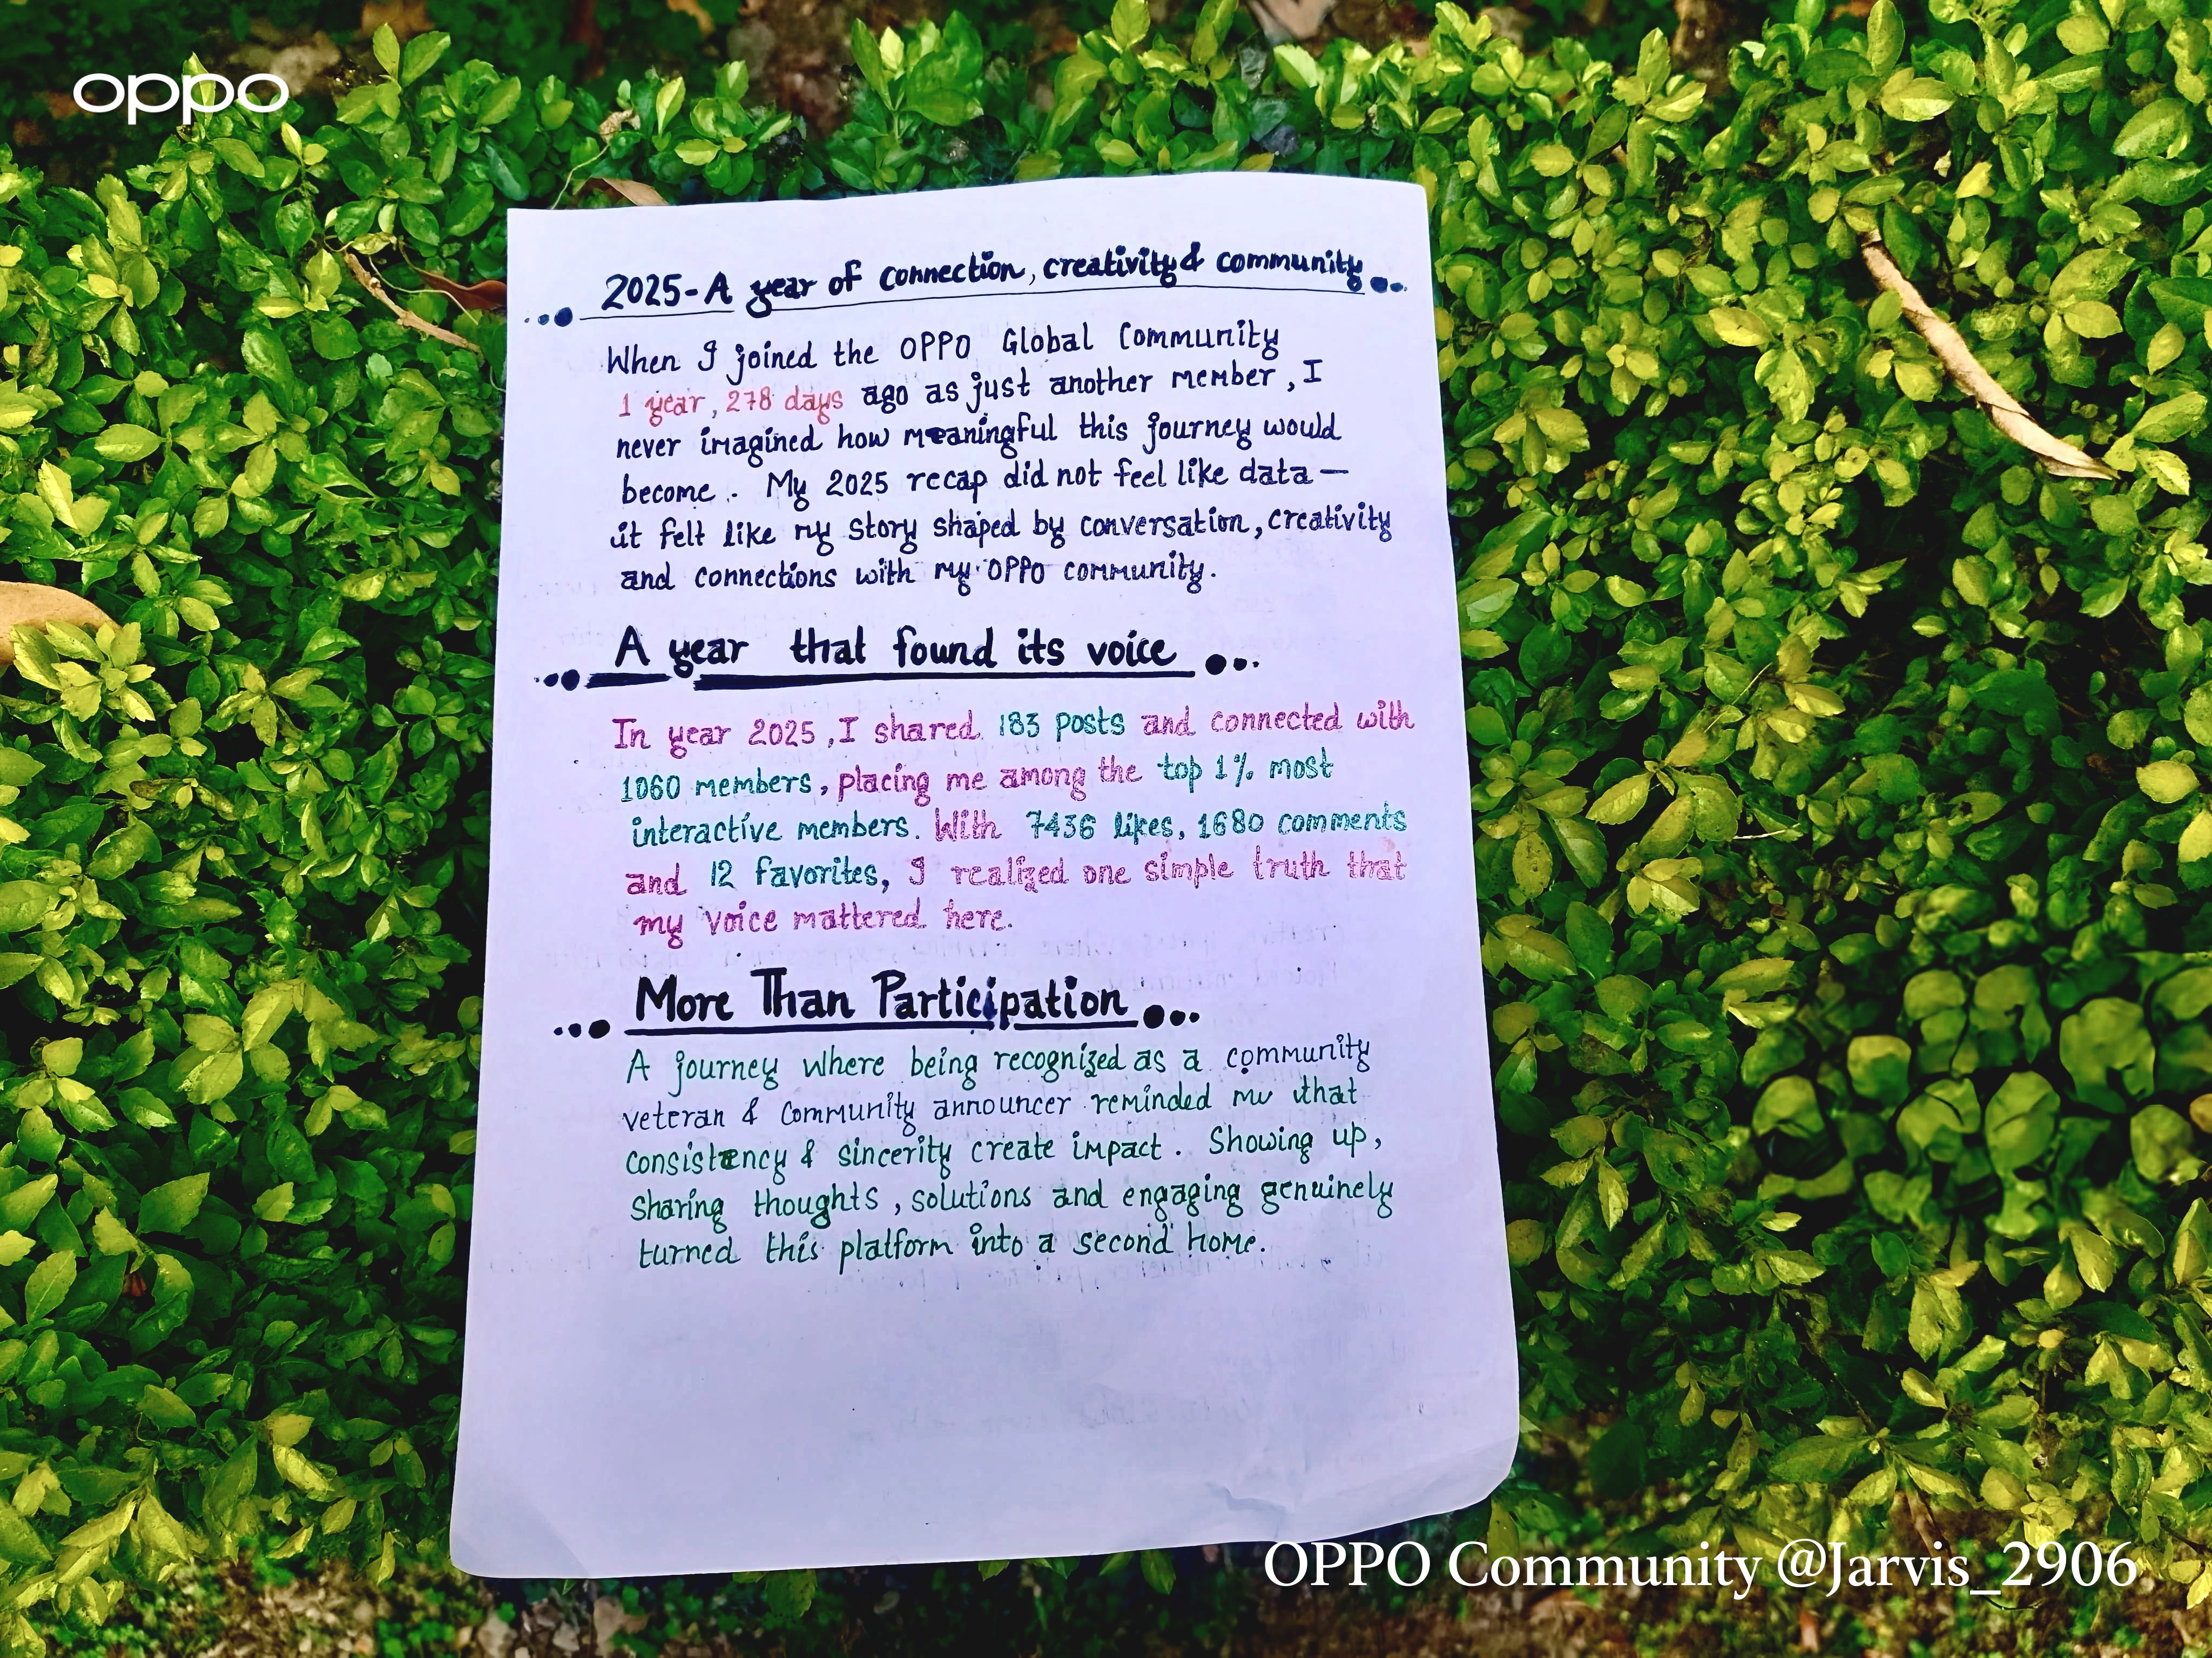 oppo
2025-A year of connection, creativity & community
When I joined the OPPO Global Community
1 year, 278 days ago as just another member, I
never imagined how meaningful this journey would
become. My 2025 recap did not feel like data —
it felt like my story shaped by conversation, creativity
and connections with my OPPO community.
A year that found its voice
In year 2025, I shared 183 posts and connected with
1060 members, placing me among the top 1% most
interactive members. With 7436 likes, 1680 comments
and 12 favorites, I realized one simple truth that
my voice mattered here.
More Than Participation
A journey where being recognized as a community
veteran & community announcer reminded me that
consistency & sincerity create impact. Showing up,
sharing thoughts, solutions and engaging genuinely
turned this platform into a second home.
OPPO Community @Jarvis_2906